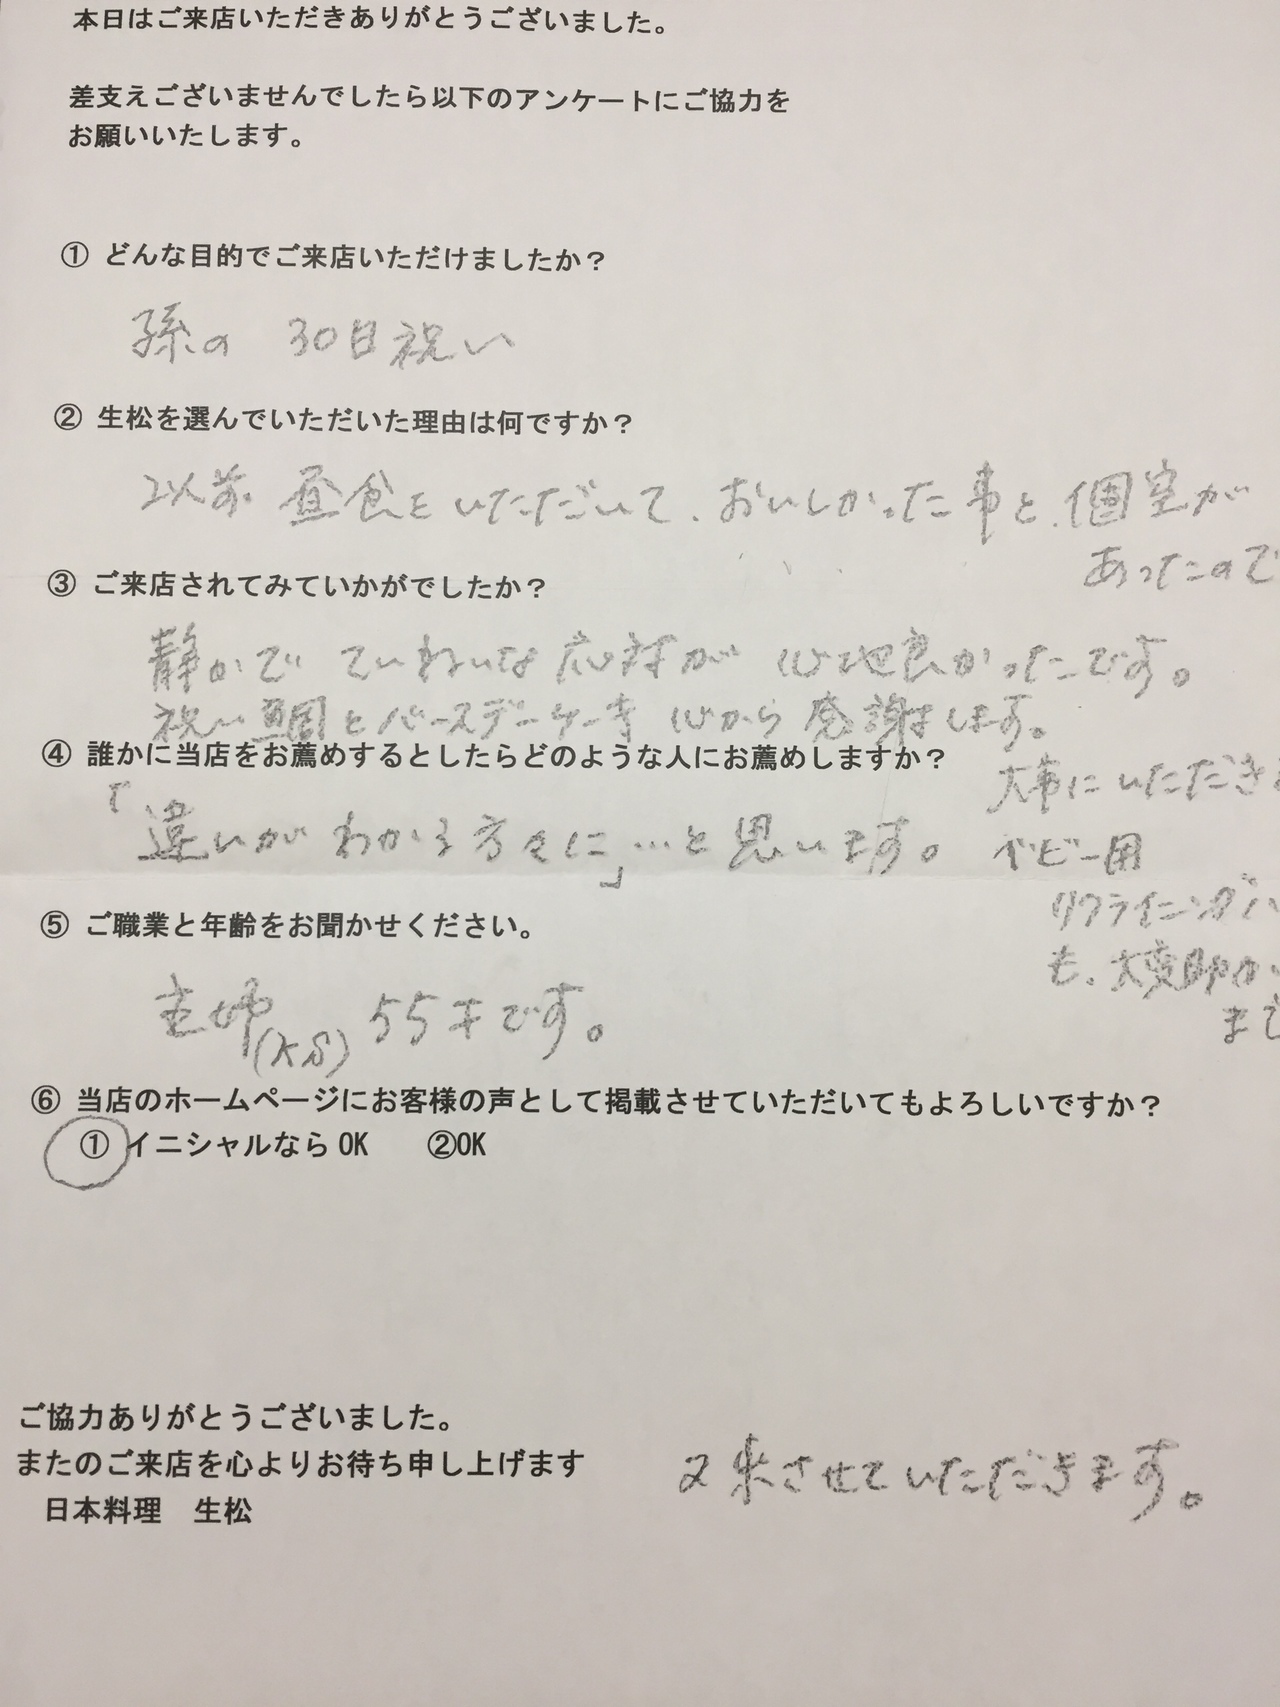 本日はご来店いただきありがとうございました。
差支えございませんでしたら以下のアンケートにご協力を
お願いいたします。
① どんな目的でご来店いただけましたか？
孫の 30日祝い
② 生松を選んでいただいた理由は何ですか？
以前 昼食をいただいて、おいしかった事と、個室が
あったので
③ ご来店されてみていかがでしたか？
静かで ていねいな 応対が 心地良かったです。
祝い鯛とバースデーケーキ 心から 感謝します。
④ 誰かに当店をお薦めするとしたらどのような人にお薦めしますか？
大事に いただき
「違いが わかる 方々に」…と 思います。
ベビー用
リクライニング
も、大変助か
⑤ ご職業と年齢をお聞かせください。
主婦 (K S) 55才です。
⑥ 当店のホームページにお客様の声として掲載させていただいてもよろしいですか？
① イニシャルなら OK ②OK
ご協力ありがとうございました。
またのご来店を心よりお待ち申し上げます
日本料理 生松
又来させていただきます。